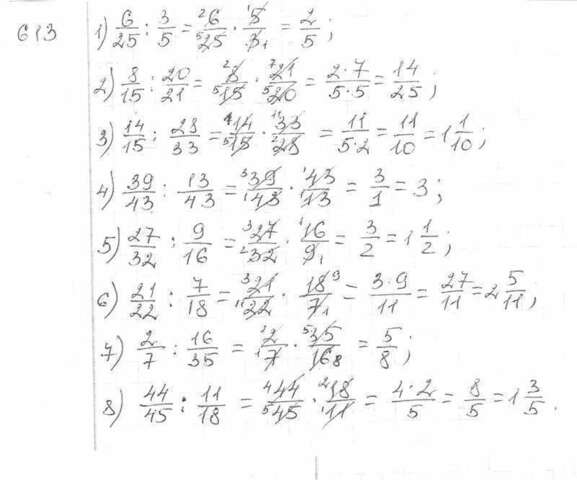 613
1) 6/25 : 3/5 = 6/25 · 5/3 = 2/5;
2) 8/15 : 20/21 = 8/15 · 21/20 = 2·7/5·5 = 14/25;
3) 14/15 : 28/33 = 14/15 · 33/28 = 11/5·2 = 11/10 = 1 1/10;
4) 39/43 : 13/43 = 39/43 · 43/13 = 3/1 = 3;
5) 27/32 : 9/16 = 27/32 · 16/9 = 3/2 = 1 1/2;
6) 21/22 : 7/18 = 21/22 · 18/7 = 3·9/11 = 27/11 = 2 5/11;
7) 2/7 : 16/35 = 2/7 · 35/16 = 5/8;
8) 44/45 : 11/18 = 44/45 · 18/11 = 4·2/5 = 8/5 = 1 3/5.